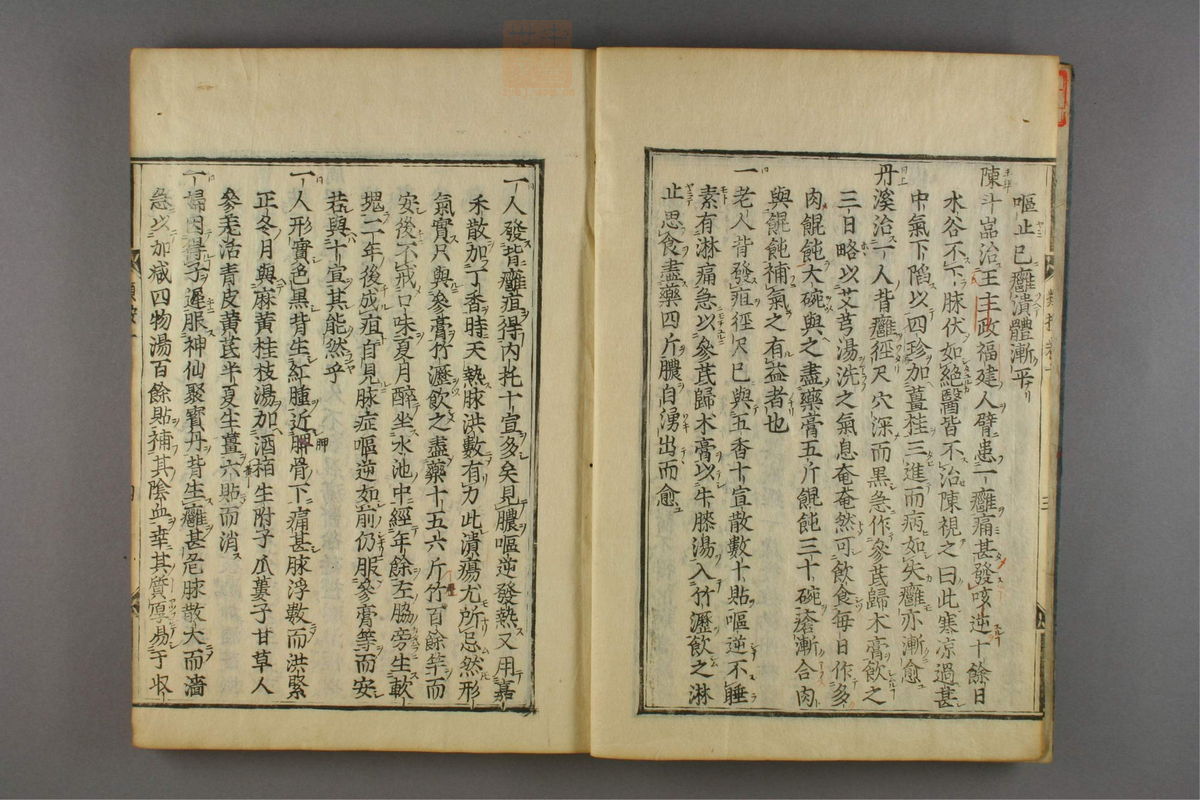 嘔止已癰潰體漸平
陳斗嵓治王主政福建人臂患一癰痛甚發咳逆十餘日
水谷不下脉伏如絕醫皆不治陳視之曰此寒凉過甚
中氣下陷以四珍加薑桂三進而病如失癰亦漸愈
丹溪治一人背癰徑尺穴深而黑急作參芪歸术膏飲之
三日略以艾芎湯洗之氣息奄奄然可飲食每日作多
肉餛飩大碗與之盡藥膏五斤餛飩三十碗瘡漸合肉
與餛飩補氣之有益者也
一老人背發疽徑尺已與五香十宣散數十貼嘔逆不睡
素有淋痛急以參芪歸术膏以牛膝湯入竹瀝飲之淋
止思食盡藥四斤膿自湧出而愈
一人發背癰疽得內托十宣多矣見膿嘔逆發熱又用嘉
禾散加丁香時天熱脉洪數有力此潰瘍尤所忌然形
氣實只與參膏竹瀝飲之盡藥十五六斤竹百餘竿而
安後不戒口味夏月醉坐水池中經年餘左脇旁生軟
塊二年後成疽自見脉症嘔逆如前仍服參膏等而安
若與十宣其能然乎
一人形實色黑背生紅腫近胛骨下痛甚脉浮數而洪緊
正冬月與麻黄桂枝湯加酒栢生附子瓜蔞子甘草人
參羌活青皮黄芪半夏生薑六貼而消
一婦因得子遲服神仙聚寶丹背生癰甚危脉散大而濇
急以加减四物湯百餘貼補其陰血幸其質厚易于收